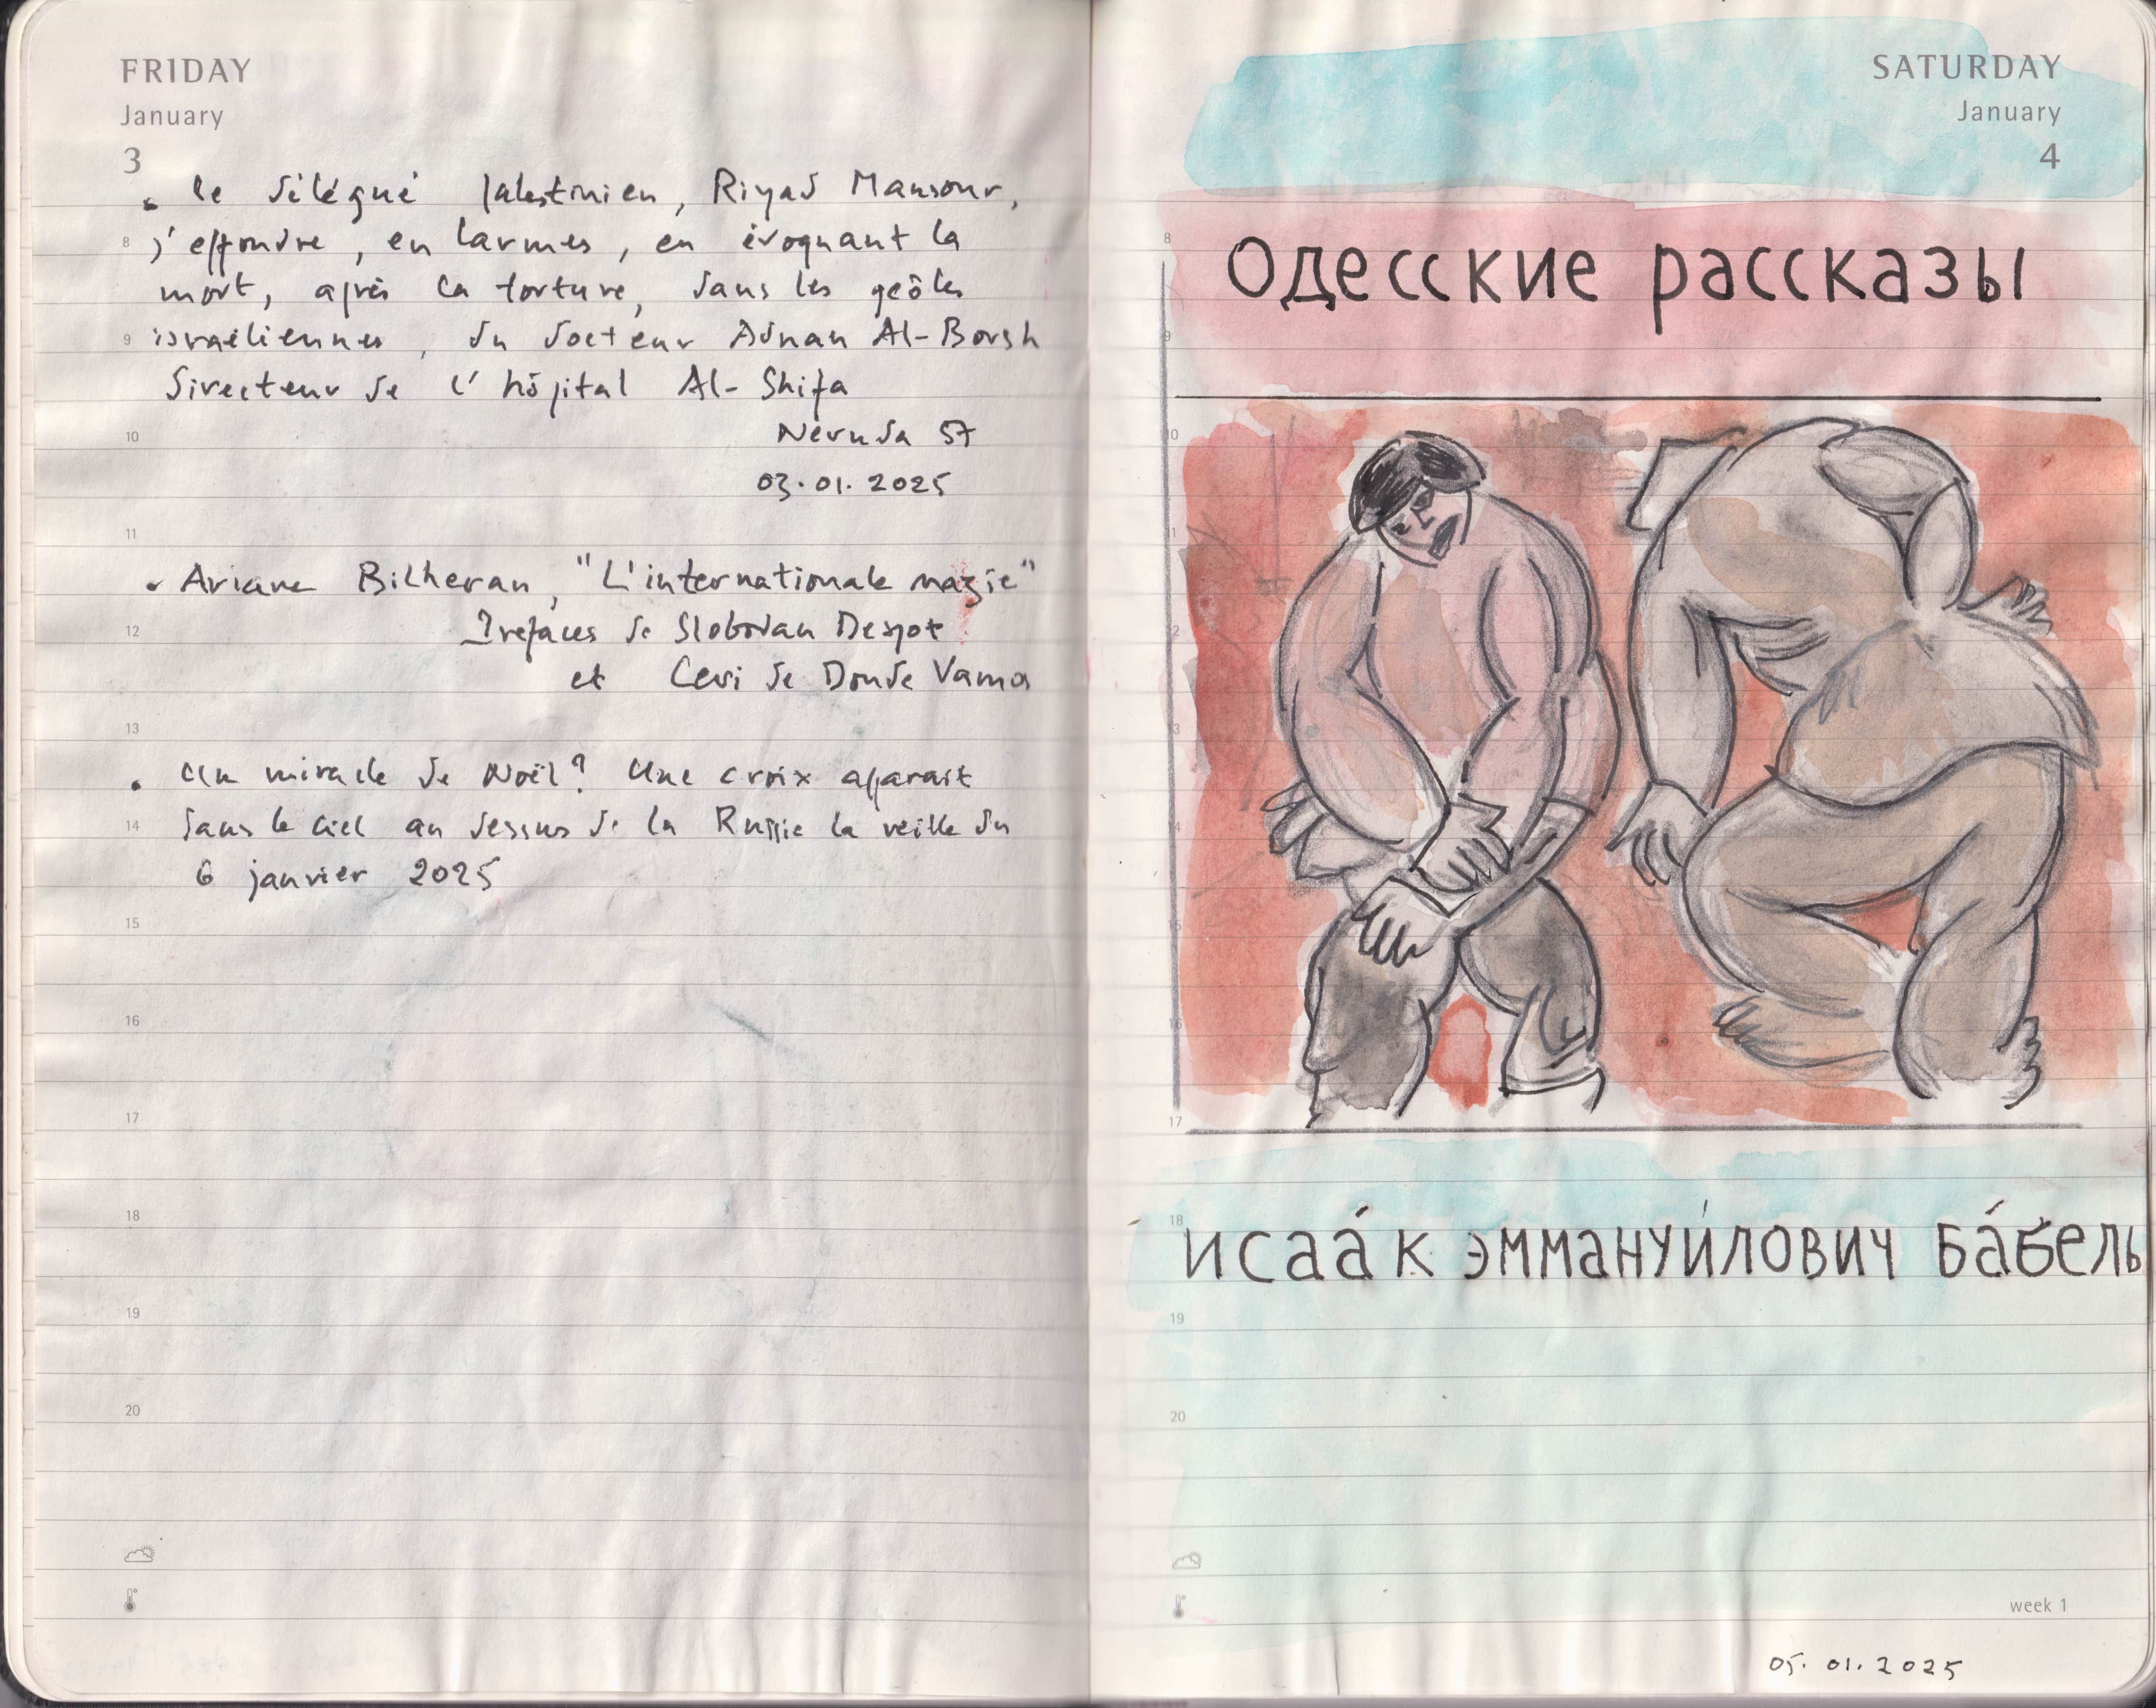 FRIDAY
January
3
. le délégué palestinien, Riyad Mansour,
8 s'effondre, en larmes, en évoquant la
mort, après la torture, dans les geôles
9 israéliennes, du docteur Adnan Al-Borsh
directeur de l'hôpital Al-Shifa
10 Neruda 57
03.01.2025
11
. Ariane Bilheran, "L'internationale nazie"
12 Préfaces de Slobodan Despot
et Cevi de Donde Vama
13
. Un miracle de Noël? Une croix apparait
14 dans le ciel au dessus de la Russie la veille du
6 janvier 2025
15
16
17
18
19
20
SATURDAY
January
4
8
одесские рассказы
9
10
11
12
13
14
15
16
17
18
исаа́к эммануи́лович ба́бель
19
20
week 1
05.01.2025